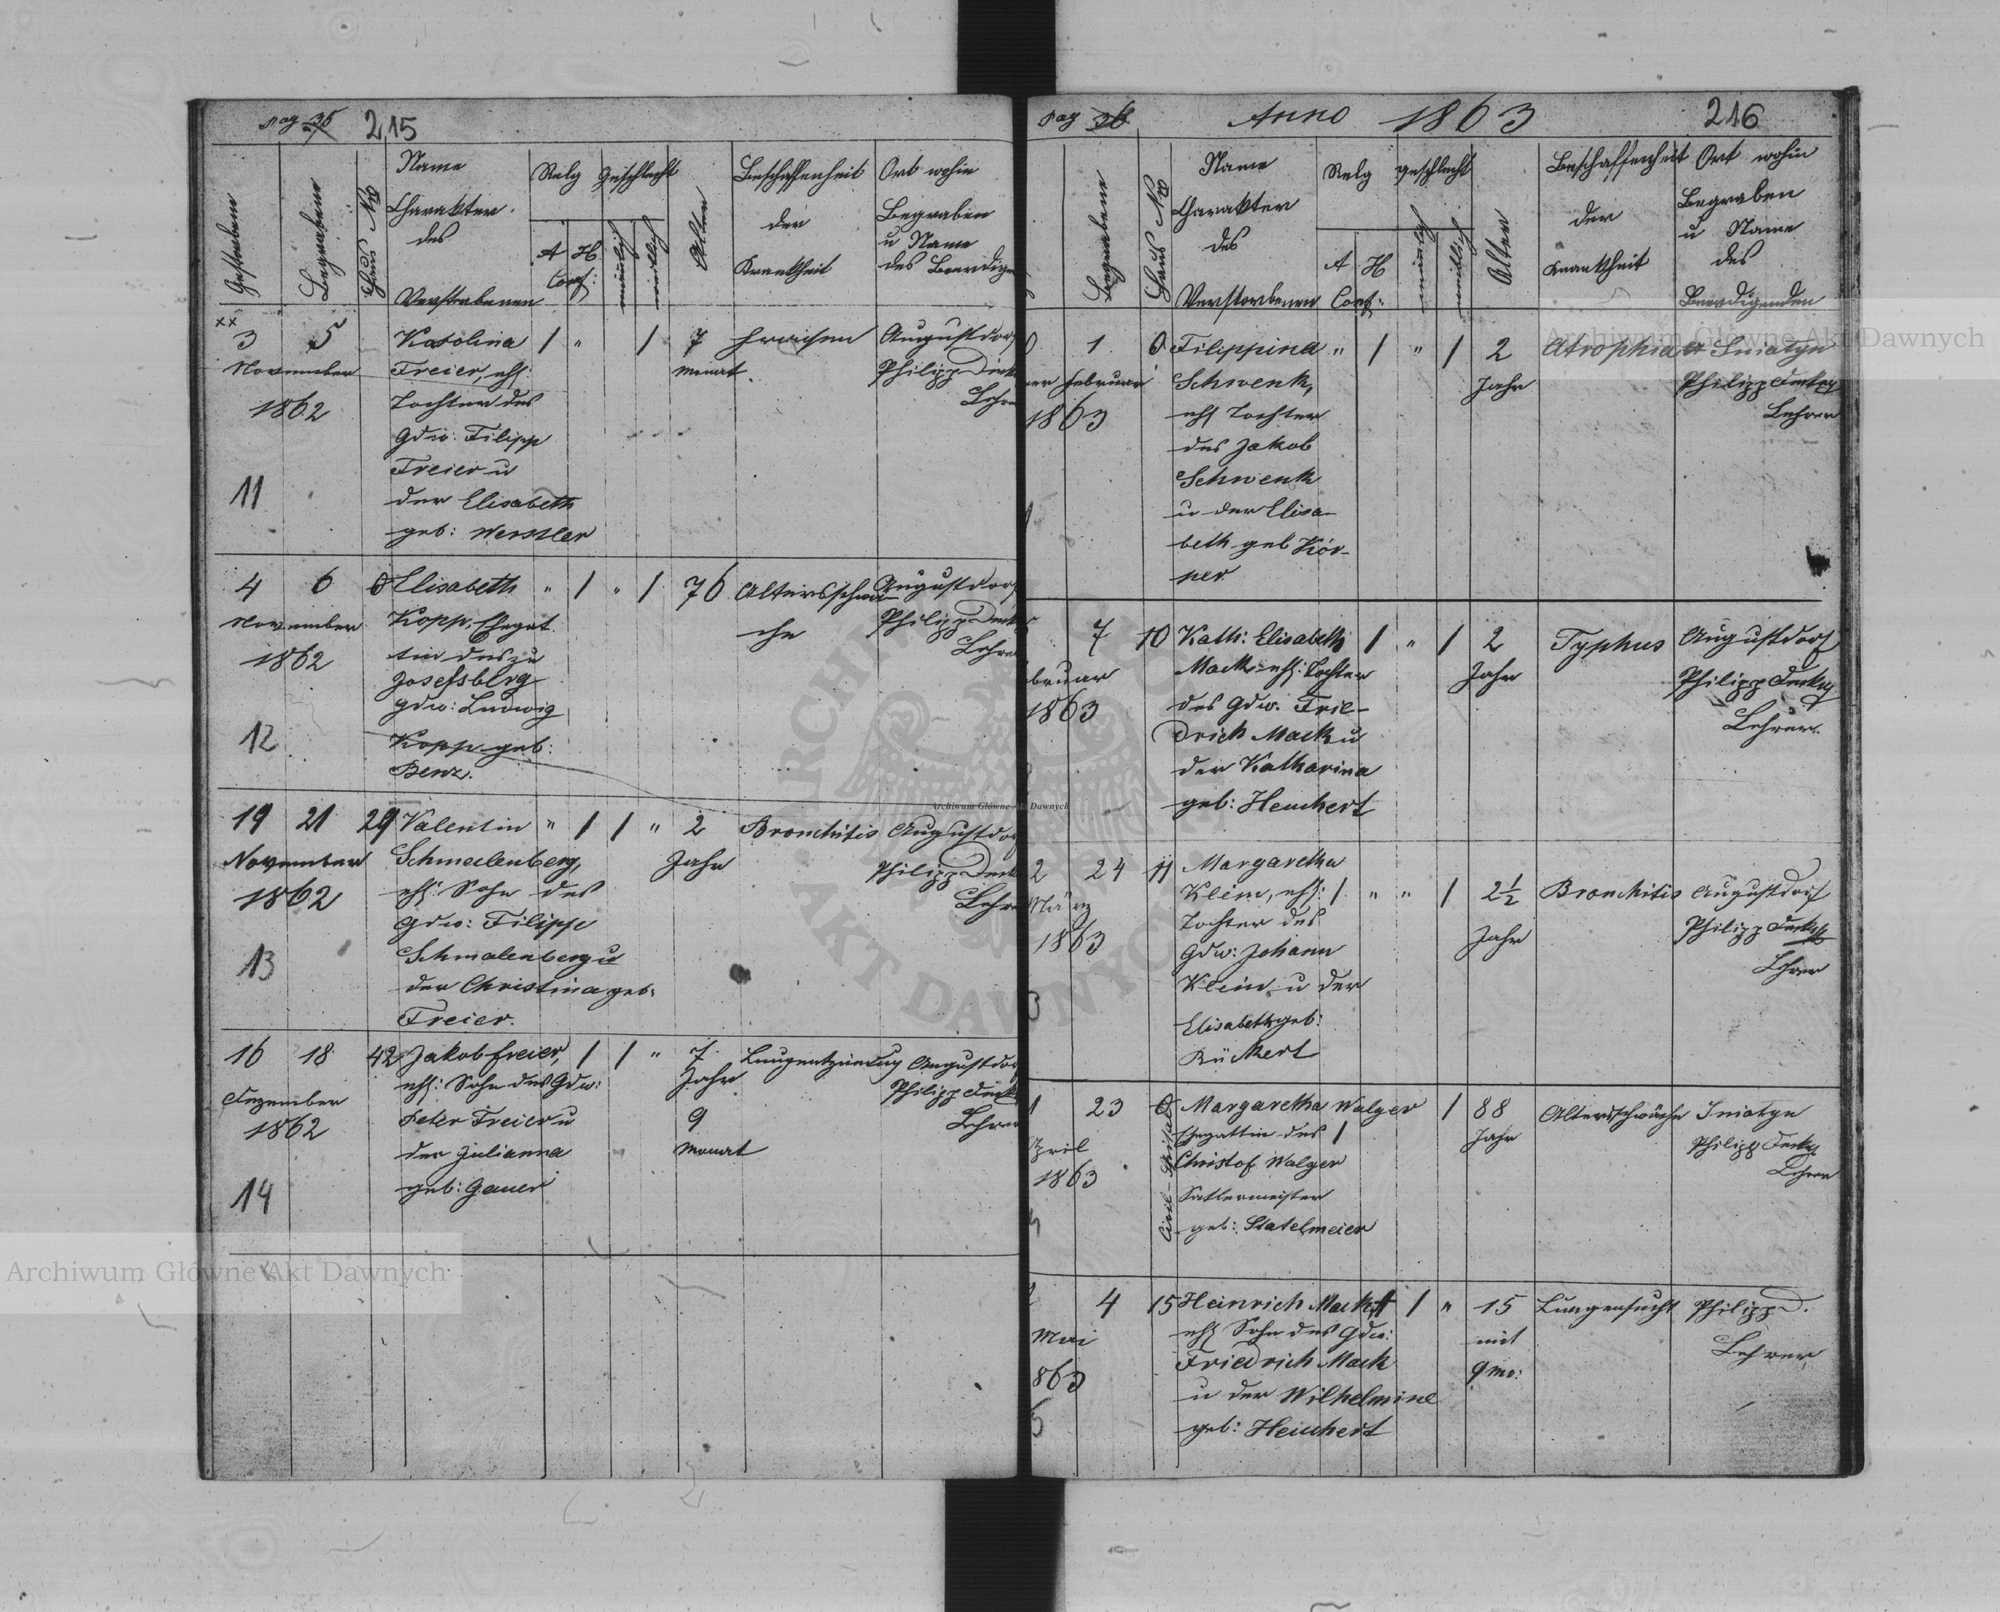 pag 35 215
Gestorbene
Begrabene
Haus No
Name
Charakter
des
Verstorbenen
Relg
A H
Conf:
Geschlecht
männlich
weiblich
Alter
Beschaffenheit
der
Krankheit
Ort wohin
Begraben
u Name
des Beerdige
3 5
November
1862
11
Karolina
Freier, ehl:
Tochter des
Gdw: Filipp
Freier u
der Elisabeth
geb: Werstler
/ " /
7
Monat
Fraisen
Augustdorf
Philipp Deck
Lehre
4 6 0
November
1862
12
Elisabeth
Kopp, Ehegat
tin des zu
Josefsberg
Gdw: Ludwig
Kopp geb:
Benz.
" / " /
76
Altersschwä
che
Augustdorf
Philipp Deck
Lehre
19 21 29
November
1862
13
Valentin
Schmalenberg,
ehl: Sohn des
Gdw: Filipp
Schmalenberg u
der Christina geb:
Freier.
" / / "
2
Jahr
Bronchitis
Augustdorf
Philipp Deck
Lehre
16 18 42
Dezember
1862
14
Jakob Freier,
ehl: Sohn des Gdw:
Peter Freier u
der Julianna
geb: Gauer
/ / "
7
Jahr
9
Monat
Lungentzündung
Augustdorf
Philipp Deck
Lehre
pag 36 Anno 1863 216
Begrabene
Haus No
Name
Charakter
des
Verstorbenen
Relg
A H
Conf:
Geschlecht
männlich
weiblich
Alter
Beschaffenheit
der
Krankheit
Ort wohin
Begraben
u Name
des
Beerdigenden
1 0
Februar
1863
Filippina
Schwenk,
ehl Tochter
des Jakob
Schwenk
u der Elisa-
beth geb Kör-
per
" / " /
2
Jahr
Atrophia
Sniatyn
Philipp Decker
Lehrer
7 10
bruar
1863
Kath: Elisabeth
Mack ehl: Tochter
des Gdw. Frie-
drich Mack u
der Katharina
geb: Heuchert
/ " /
2
Jahr
Typhus
Augustdorf
Philipp Decker
Lehrer.
2 24 11
März
1863
3
Margaretha
Klein, ehl:
Tochter des
Gdw: Johann
Klein u der
Elisabeth geb:
Rückert
/ " " /
2½
Jahr
Bronchitis
Augustdorf
Philipp Decker
Lehrer
1 23 0
April
1863
Civil-Spital
Margaretha Walger
Ehegattin des
Christof Walger
Sattlermeister
geb: Statelmeier
/ /
88
Jahr
Altersschwäche
Sniatyn
Philipp Decker
Lehrer
4 15
Mai
863
5
Heinrich Mack
ehl Sohn des Gdw:
Friedrich Mack
u der Wilhelmine
geb: Heuchert
/ / "
15
mit
9 mo:
Lungensucht
Philipp D.
Lehrer
Archiwum Główne Akt Dawnych
Archiwum Główne Akt Dawnych
Archiwum Główne Akt Dawnych